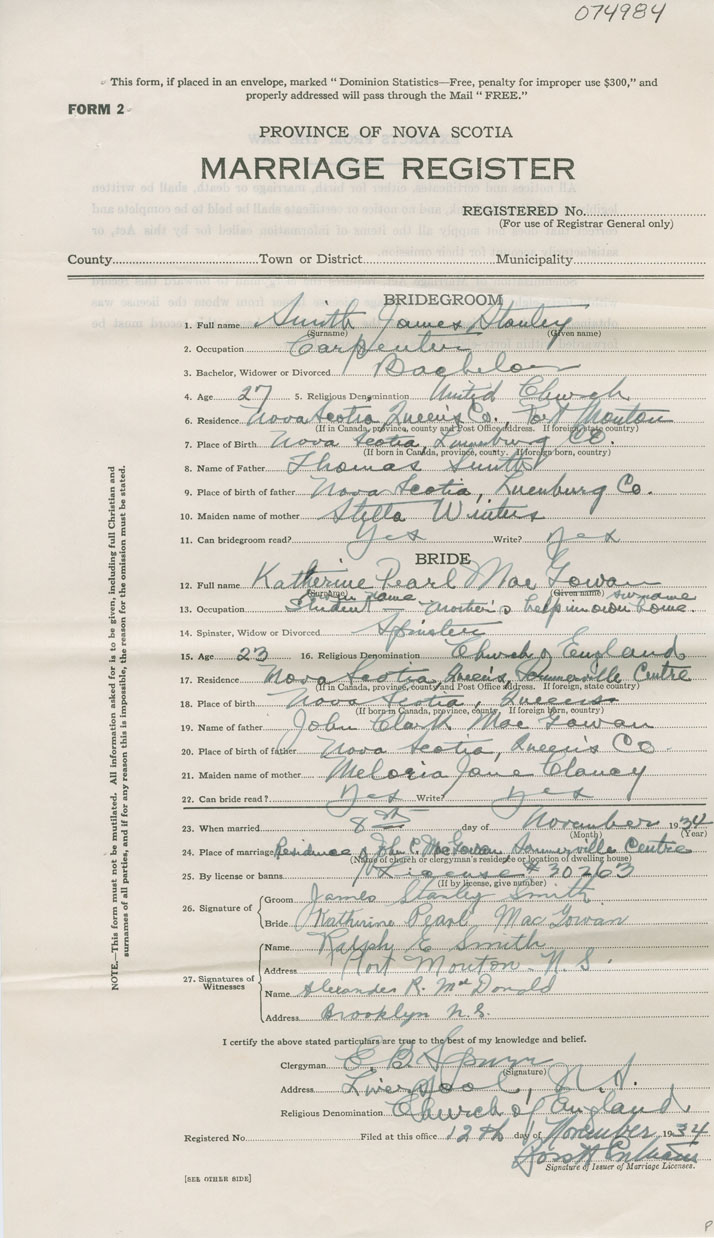 074984
This form, if placed in an envelope, marked “ Dominion Statistics—Free, penalty for improper use $300,” and
properly addressed will pass through the Mail “ FREE.”
FORM 2
PROVINCE OF NOVA SCOTIA
MARRIAGE REGISTER
REGISTERED No.
(For use of Registrar General only)
County Town or District Municipality
BRIDEGROOM
1. Full name Smith James Stanley
(Surname) (Given name)
2. Occupation Carpenter
3. Bachelor, Widower or Divorced Bachelor
4. Age 27 5. Religious Denomination United Church
6. Residence Nova Scotia Queen's Co. Port Mouton
(If in Canada, province, county and Post Office address. If foreign, state country)
7. Place of Birth Nova Scotia, Lunenburg Co.
(If born in Canada, province, county. If foreign born, country)
8. Name of Father Thomas Smith
9. Place of birth of father Nova Scotia, Luenburg Co.
10. Maiden name of mother Stella Winters
11. Can bridegroom read? Yes Write? Yes
BRIDE
12. Full name Katherine Pearl Mac Gowan
(Surname) Given name (Given name) surname
13. Occupation Student — Mother's help in own home.
14. Spinster, Widow or Divorced Spinster
15. Age 23 16. Religious Denomination Church of England
17. Residence Nova Scotia, Queen's, Sommerville Centre
(If in Canada, province, county and Post Office address. If foreign, state country)
18. Place of birth Nova Scotia, Queens
(If born in Canada, province, county. If foreign born, country)
19. Name of father John Clark Mac Gowan
20. Place of birth of father Nova Scotia, Queen's Co
21. Maiden name of mother Meloria Jane Clancy
22. Can bride read ? Yes Write? yes
23. When married 8th day of November 1934
(Month) (Year)
24. Place of marriage Residence of John C. MacGowan Sommerville Centre
(Name of church or clergyman's residence or location of dwelling house)
25. By license or banns License # 30263
(If by license, give number)
26. Signature of Groom James Stanley Smith
Bride Katherine Pearl MacGowan
27. Signatures of Witnesses Name Ralph E Smith
Address Port Mouton N. S.
Name Alexander R. McDonald
Address Brooklyn N.S.
I certify the above stated particulars are true to the best of my knowledge and belief.
Clergyman
(Signature)
Address Liverpool, N.S.
Religious Denomination Church of England
Registered No. Filed at this office 12th day of November 1934
Signature of Issuer of Marriage Licenses.
[SEE OTHER SIDE]
NOTE.—This form must not be mutilated. All information asked for is to be given, including full Christian and
surnames of all parties, and if for any reason this is impossible, the reason for the omission must be stated.